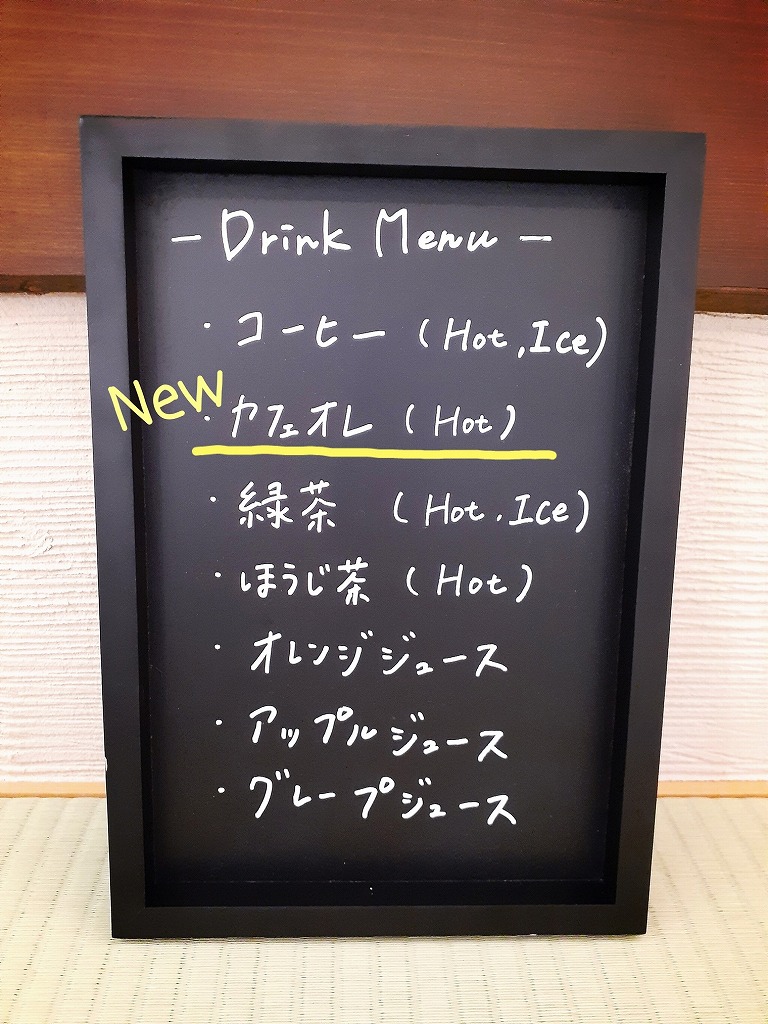 - Drink Menu -
・コーヒー (Hot, Ice)
New
・カフェオレ (Hot)
・緑茶 (Hot, Ice)
・ほうじ茶 (Hot)
・オレンジジュース
・アップルジュース
・グレープジュース